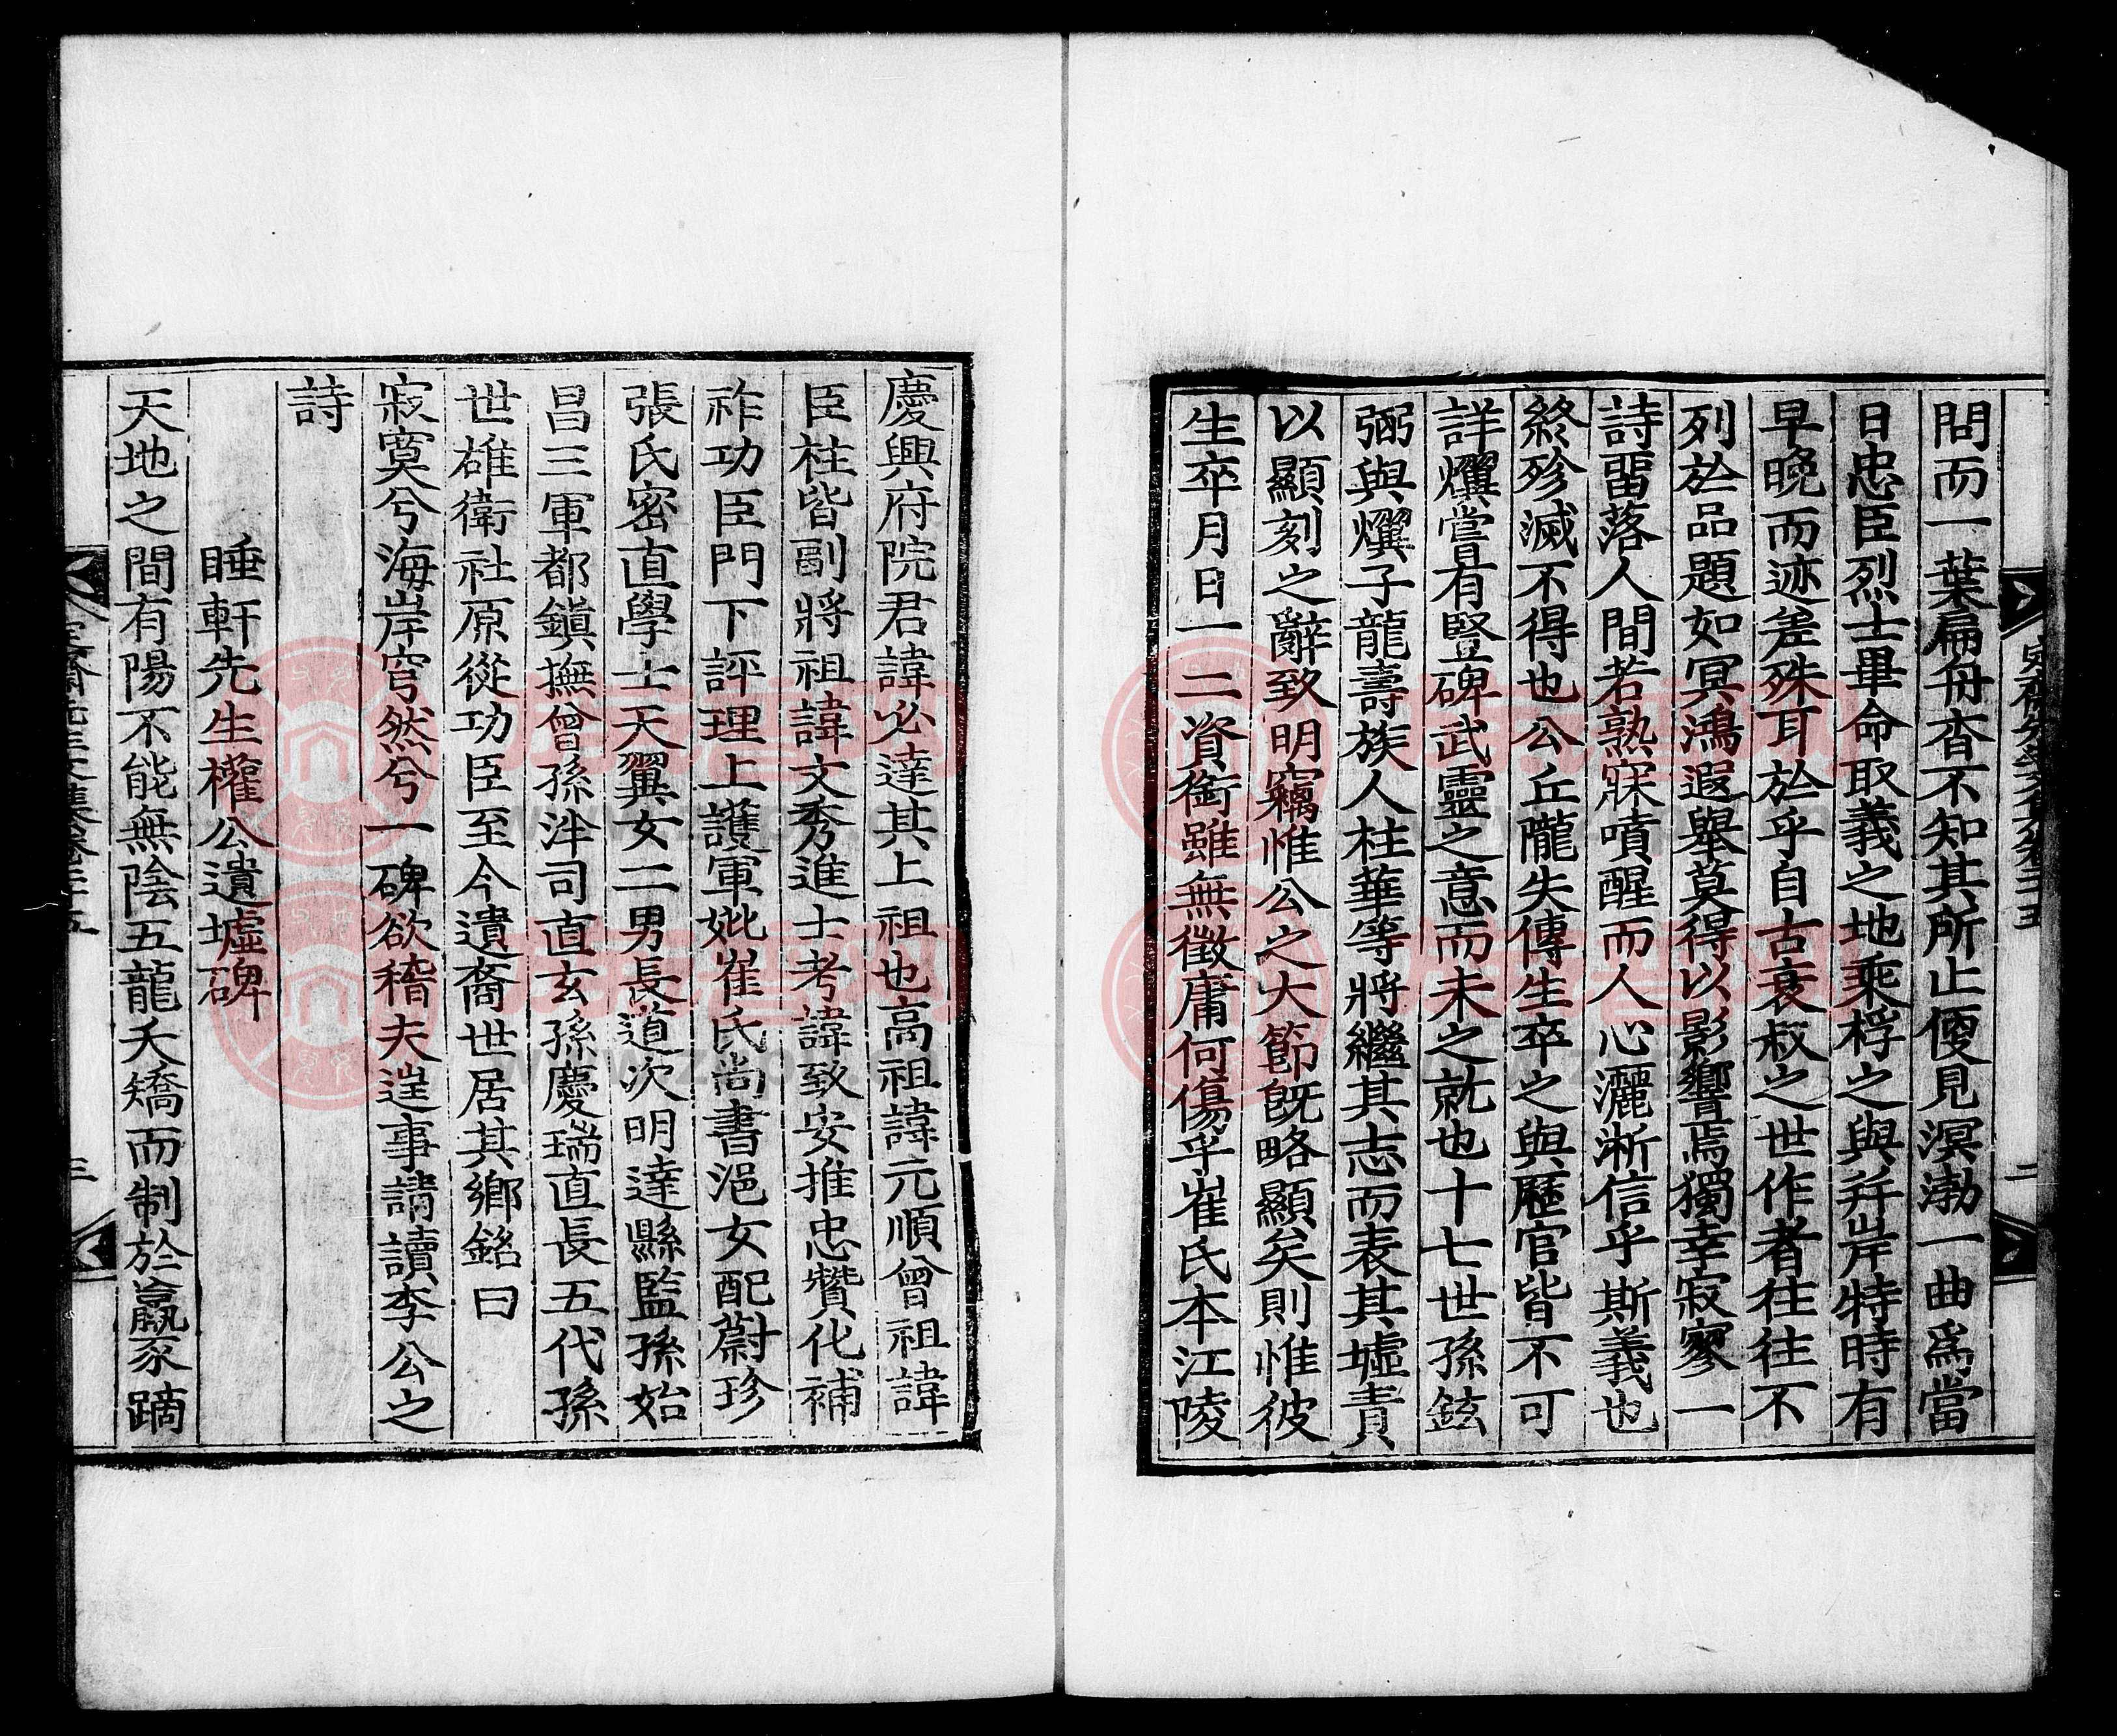 問而一葉扁舟杳不知其所止傻見溟渤一曲爲當
日忠臣烈士畢命取義之地乘桴之與幷岸特時有
早晚而迹差殊耳於乎自古衰叔之世作者往往不
列於品題如冥鴻遐擧莫得以影響焉獨幸寂寥一
詩留落人間若熟寐噴醒而人心灑淅信乎斯義也
終殄滅不得也公丘隴失傳生卒之與歷官皆不可
詳爟嘗有豎碑武靈之意而未之就也十七世孫鉉
弼與爟子龍壽族人柱華等將繼其志而表其墟責
以顯刻之辭致明竊惟公之大節旣略顯矣則惟彼
生卒月日一二資銜雖無徵庸何傷乎崔氏本江陵
二
慶興府院君諱必達其上祖也高祖諱元順曾祖諱
臣柱皆副將祖諱文秀進士考諱致安推忠贊化補
祚功臣門下評理上護軍妣崔氏尚書浥女配蔚珍
張氏密直學士天翼女二男長道次明達縣監孫始
昌三軍都鎭撫曾孫泮司直玄孫慶瑞直長五代孫
世雄衛社原從功臣至今遺裔世居其鄉銘曰
寂寞兮海岸穹然兮一碑欲稽夫逞事請讀李公之
詩
睡軒先生權公遺墟碑
天地之間有陽不能無陰五龍夭矯而制於羸豕蹢
三